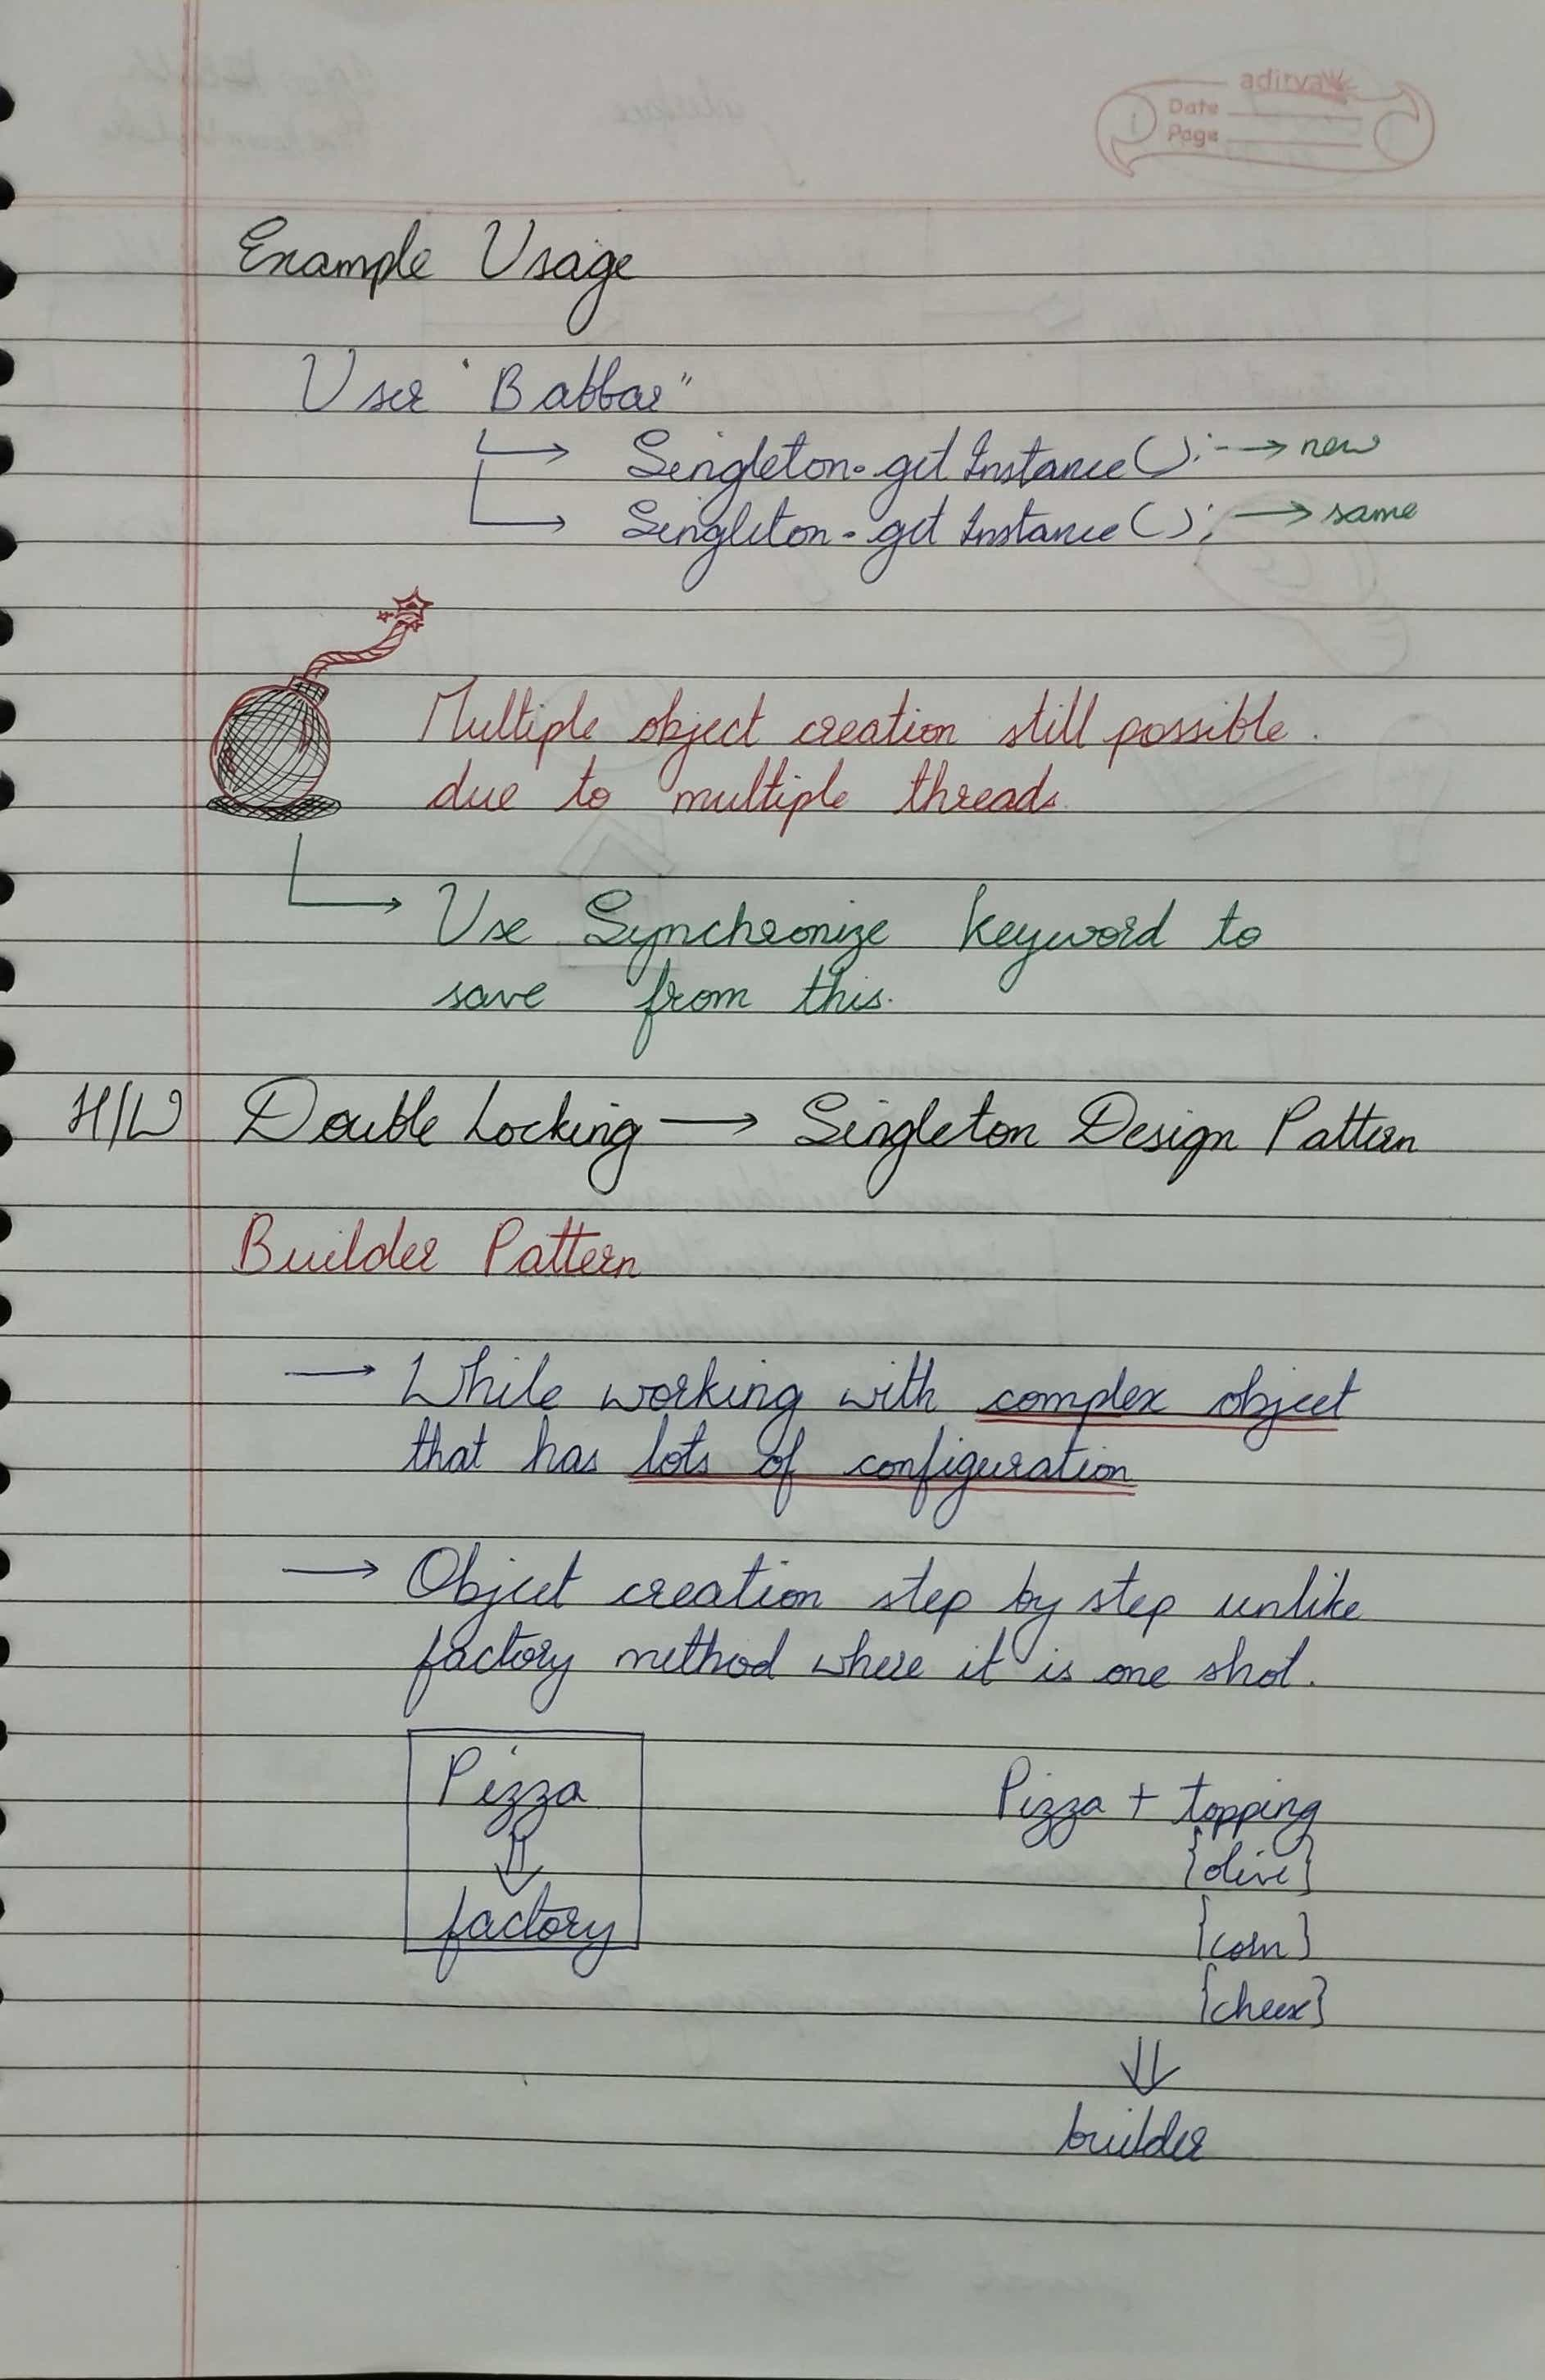 aditya
Date
Page
Example Usage
User "Babbar"
Singleton.getInstance(); → new
Singleton.getInstance(); → same
Multiple object creation still possible.
due to multiple threads.
Use Synchronize keyword to
save from this.
H/W Double Locking → Singleton Design Pattern
Builder Pattern
→ While working with complex object
that has lots of configuration
→ Object creation step by step unlike
factory method where it is one shot.
Pizza
⇓
factory
Pizza + topping
{olive}
{corn}
{cheese}
⇓
builder